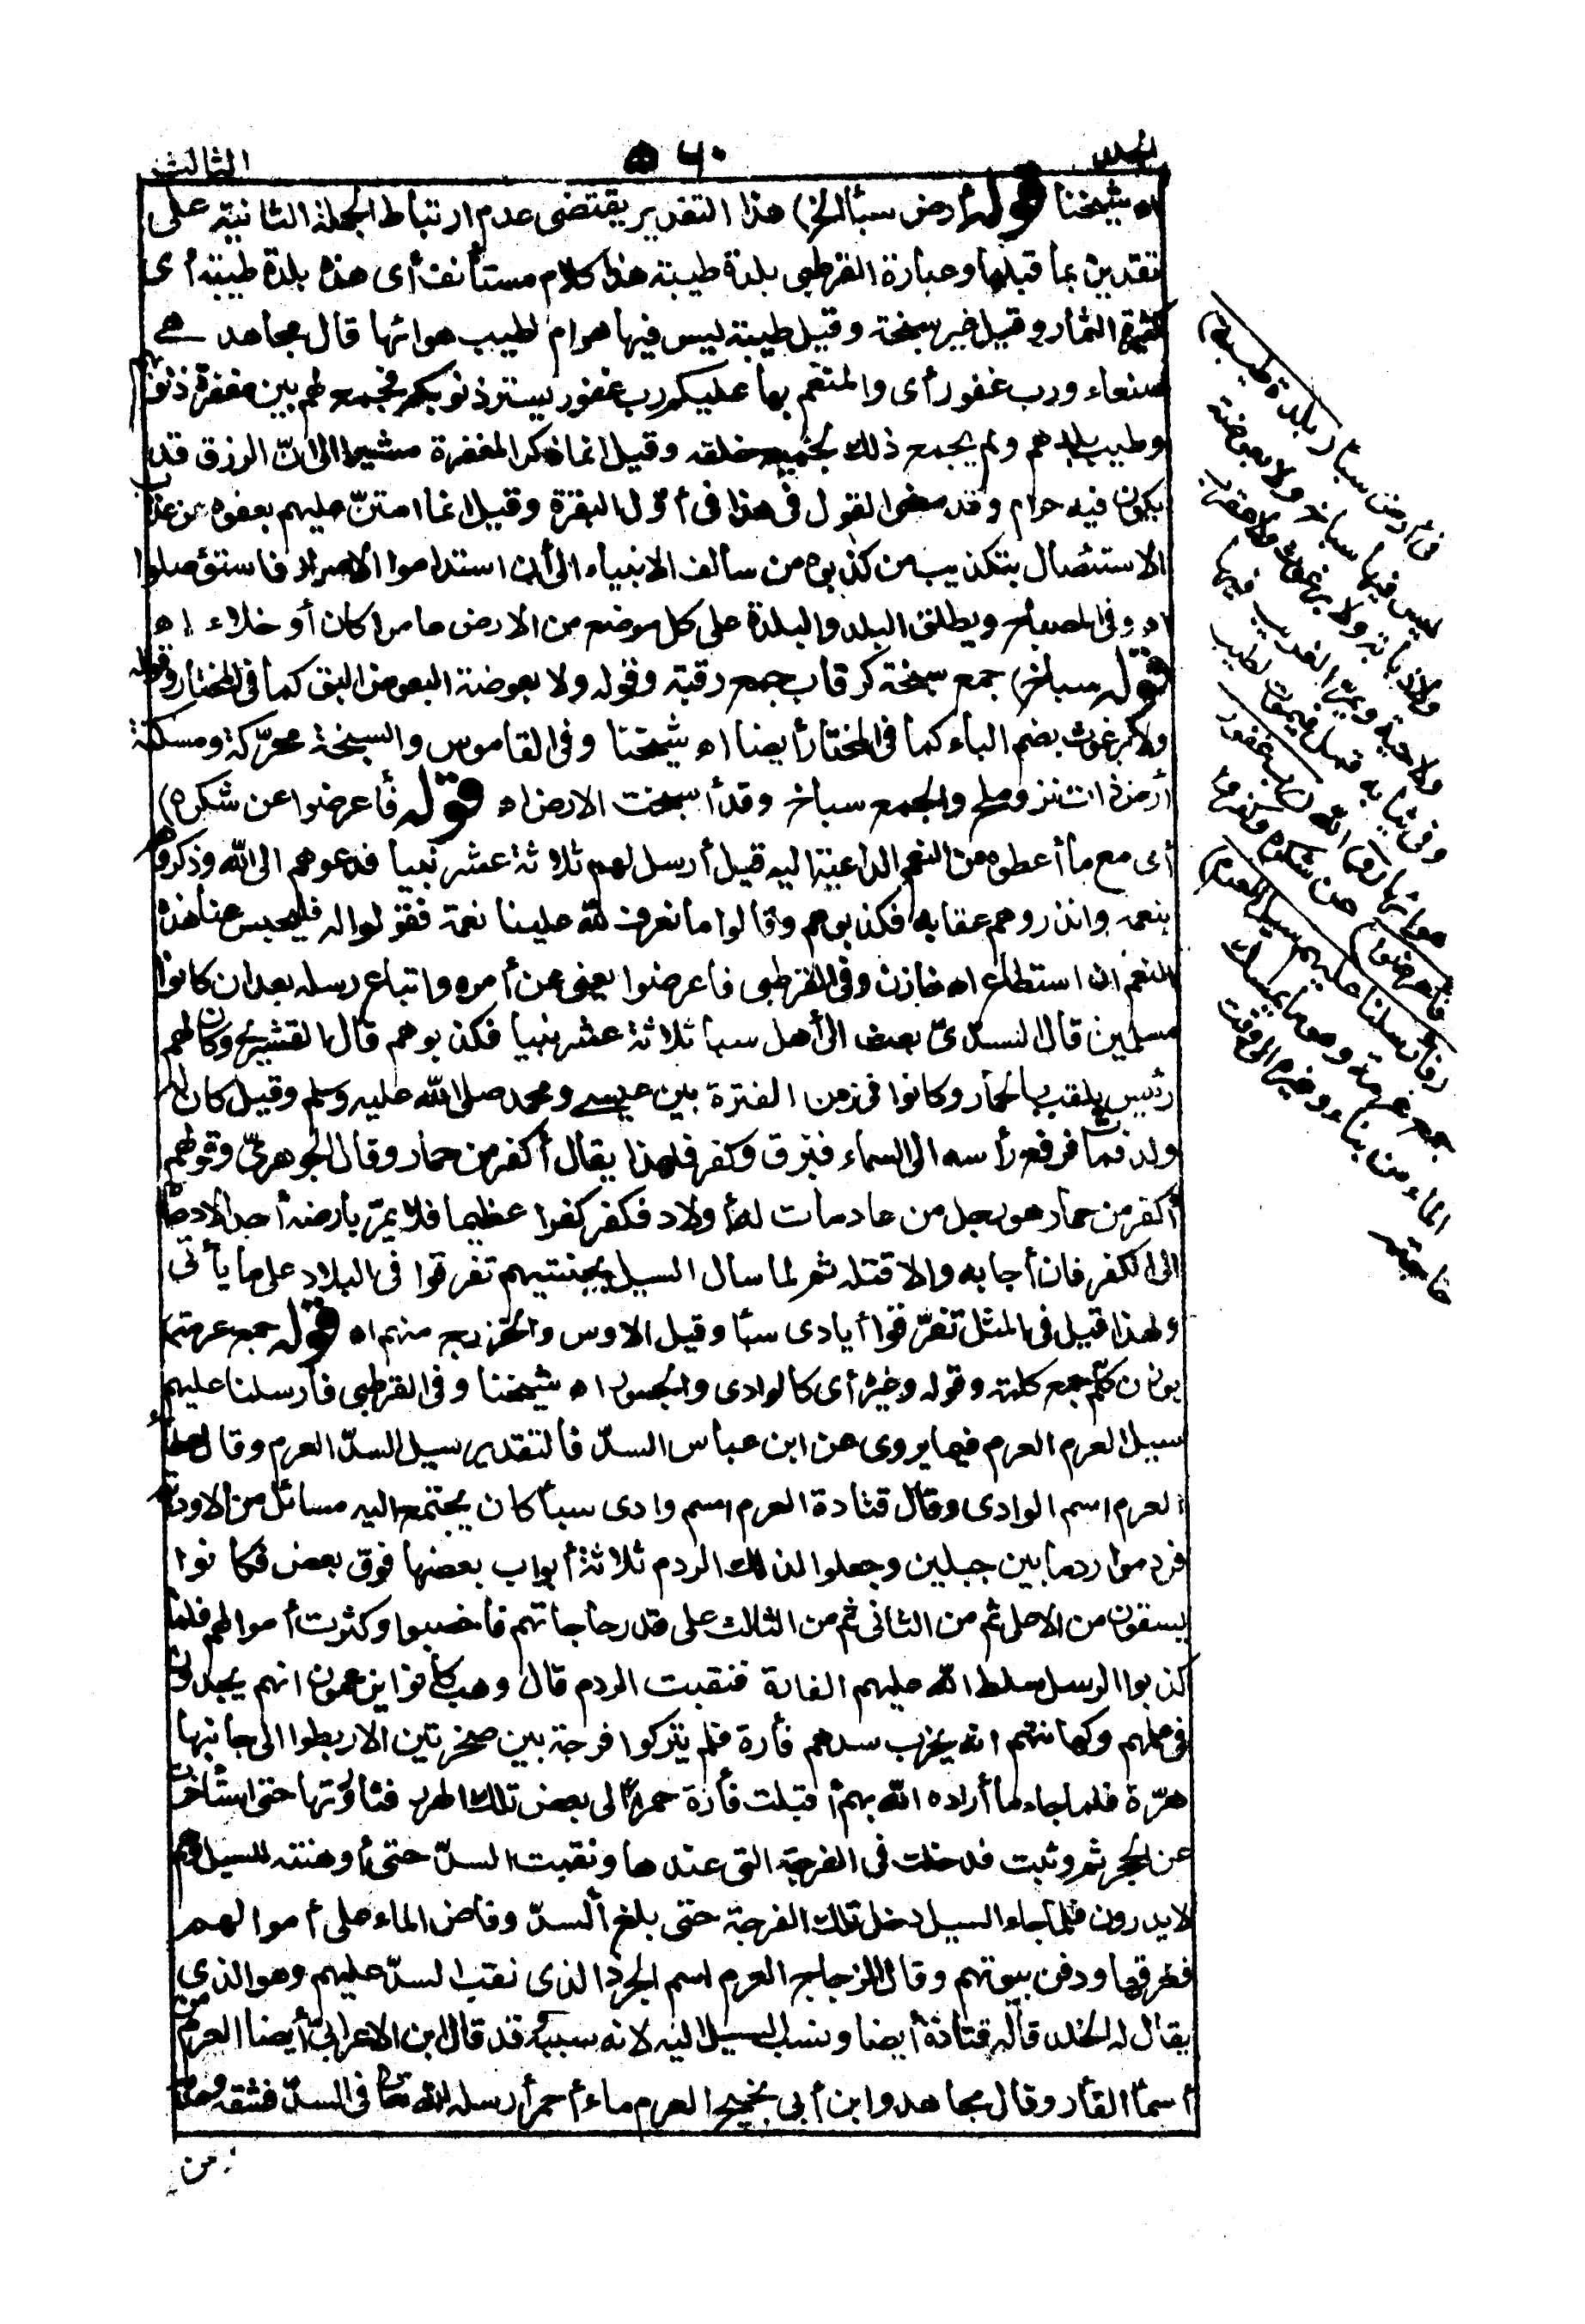 الجلد
٥٦٠
الثالث
اه شيخنا قوله أرض سبأ الخ) هذا التقدير يقتضى عدم ارتباط الجملة الثانية على
تقدير بما قبلها وعبارة القرطبى بلدة طيبة هذا كلام مستأنف أى هذه بلدة طيبة أى
كثيرة الثمار وقيل غير سبخة وقيل طيبة ليس فيها هوام لطيب هوائها قال مجاهد هى
صنعاء ورب غفور أى والمنعم بها عليكم رب غفور يستر ذنوبكم فجمع لهم بين مغفرة ذنوبهم
وطيب بلدهم ولم يجمع ذلك لجميع خلقه وقيل انما ذكر المغفرة مشيرا الى انّ الرزق قد
يكون فيه حرام وقد مضى القول فى هذا فى أوّل البقرة وقيل انما امتنّ عليهم بعفوه عن عذاب
الاستئصال بتكذيب من كذبوه من سالف الانبياء الى أن استداموا الاصرار فاستؤصلوا
اه وفى المصباح ويطلق البلد والبلدة على كل موضع من الارض عامرا كان أو خلاء اه
قوله سباخ) جمع سبخة كرقاب جمع رقبة وقوله ولا بعوضة البعوض البق كما فى المختار وقوله
ولا برغوث بضم الباء كما فى المختار أيضا اه شيخنا وفى القاموس والسبخة محرّكة ومسكنة
أرض ذات نز وملح والجمع سباخ وقد أسبخت الارض اه قوله فأعرضوا عن شكره)
أى مع ما أعطوه من النعم الداعية اليه قيل أرسل لهم ثلاثة عشر نبيا فدعوهم الى الله وذكروهم
بنعمه وانذروهم عقابه فكذبوهم وقالوا ما نعرف لله علينا نعمة فقولوا له فليحبس عنا هذه
النعم ان استطاع اه خازن وفى القرطبى فاعرضوا يعنى عن أمره واتباع رسله بعد ان كانوا
مسلمين قال السدّىّ بعث الى أهل سبا ثلاثة عشر نبيا فكذبوهم قال القشيرى وكان لهم
رئيس يلقب بالحمار وكانوا فى زمن الفترة بين عيسى ومحمد صلى الله عليه وسلم وقيل كان له
ولد فمات فرفع رأسه الى السماء فبزق وكفر فلهذا يقال أكفر من حمار وقال الجوهرىّ وقولهم
أكفر من حمار هو رجل من عاد مات له أولاد فكفر كفرا عظيما فلا يمرّ بأرضه أحد الا دعاه
الى الكفر فان أجابه والا قتله ثم لما سال السيل بجنتيهم تفرقوا فى البلاد على ما يأتى
ولهذا قيل فى المثل تفرّقوا أيادى سبأ وقيل الاوس والخزرج منهم اه قوله جمع عرمة)
بوزن كلم جمع كلمة وقوله وغيره أى كالوادى والجسور اه شيخنا وفى القرطبى فأرسلنا عليهم
سيل العرم العرم فيما يروى عن ابن عباس السدّ فالتقدير سيل السدّ العرم وقال عطاء
العرم اسم الوادى وقال قتادة العرم اسم وادى سبأ كان يجتمع اليه مسائل من الاودية
فردموا ردما بين جبلين وجعلوا لذلك الردم ثلاثة أبواب بعضها فوق بعض فكانوا
يسقون من الاعلى ثم من الثانى ثم من الثالث على قدر حاجاتهم فأخصبوا وكثرت أموالهم فلما
كذبوا الرسل سلط الله عليهم الفارة فنقبت الردم قال وهب كانوا يزعمون انهم يجدون
فى علمهم وكهانتهم انه يخرب سدهم فأرة فلم يتركوا فرجة بين صخرتين الا ربطوا الى جانبها
هرّة فلما جاء ما أراده الله بهم أقبلت فأرة حمراء الى بعض تلك الهرر فثاورتها حتى استأخرت
عن الحجر ثم وثبت فدخلت فى الفرجة التى عندها ونقبت السدّ حتى أوهنته للسيل وهم
لا يدرون فلما جاء السيل دخل تلك الفرجة حتى بلغ السدّ وفاض الماء على أموالهم
فغرقها ودفن بيوتهم وقال الزجاج العرم اسم الجرذ الذى نقب السدّ عليهم وهو الذى
يقال له الخلد قاله قتادة أيضا ونسب السيل اليه لانه سببه وقد قال ابن الاعرابىّ أيضا العرم من
أسماء الفأر وقال مجاهد وابن أبى نجيح العرم ماء أحمر أرسله الله تعالى فى السدّ فشقه وهدّمه
من
فى أرض سبأ (بلدة طيبة)
ليس فيها سباخ ولا بعوضة
ولا ذبابة ولا برغوث ولا عقرب
ولا حية ويمرّ الغريب فيها
وفى ثيابه قمل فيموت لطيب
هوائها (و) الله (رب غفور
فأعرضوا) عن شكره وكفروا
(فأرسلنا عليهم سيل العرم)
جمع عرمة وهو ما يمسك
الماء من بناء وغيره الى وقت
حاجته